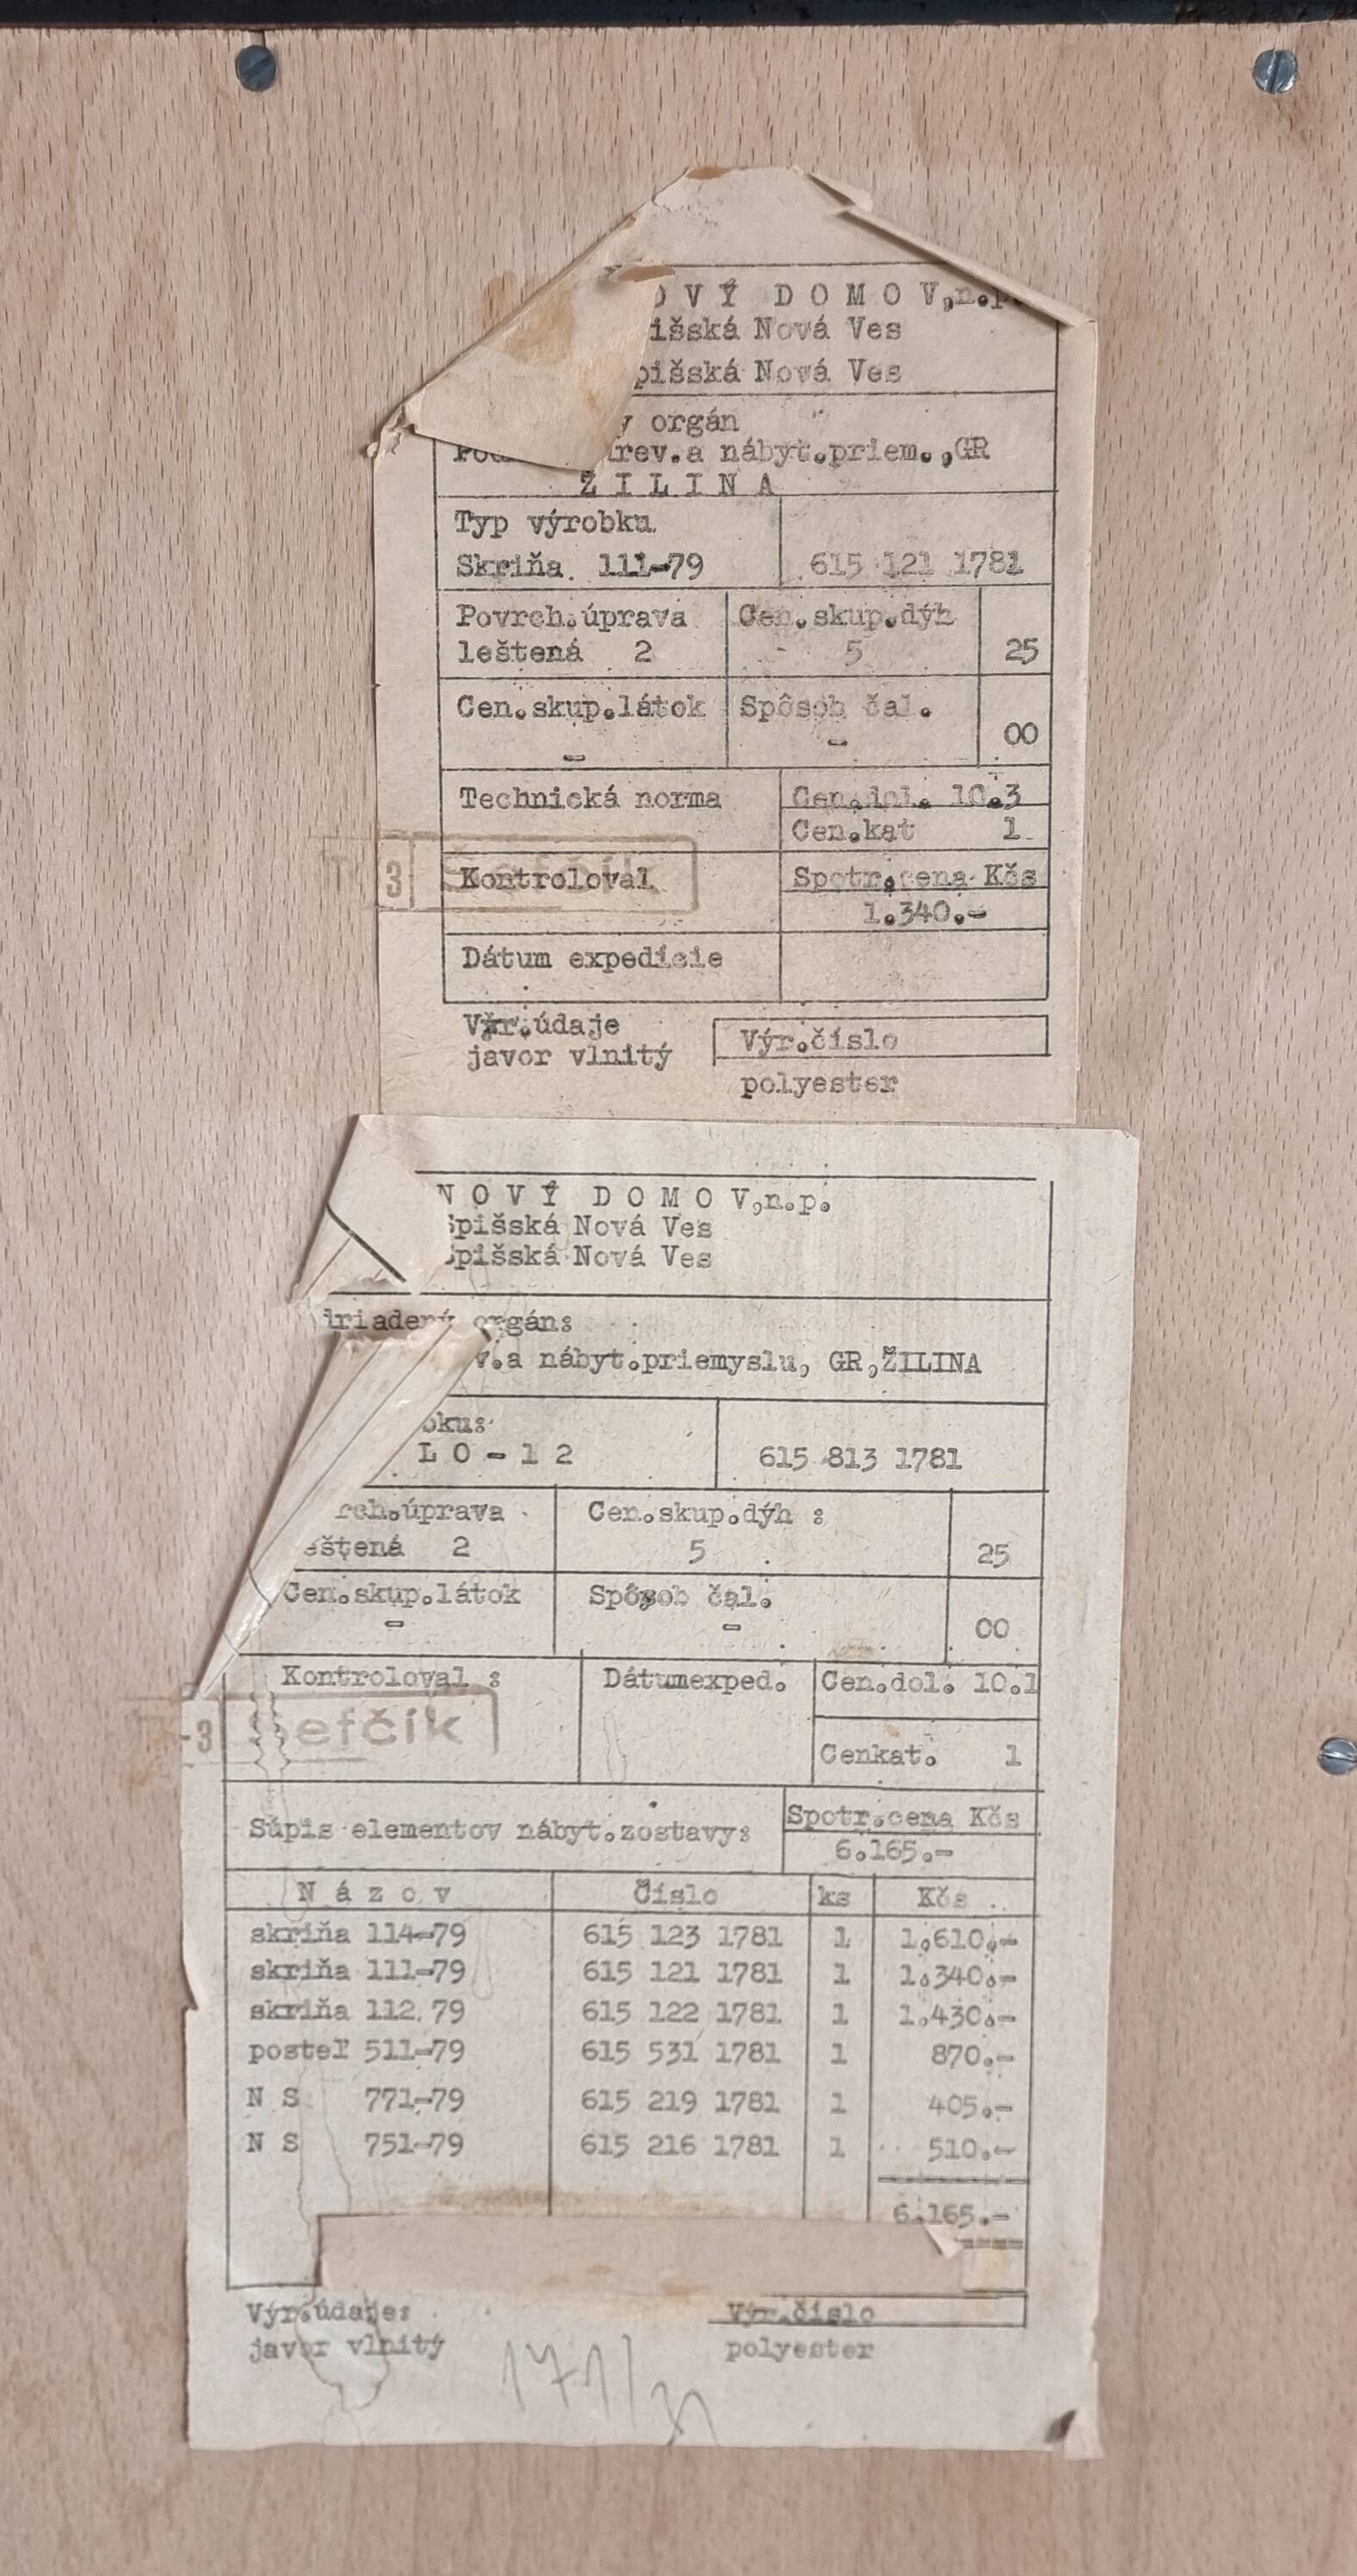 OVÝ DOMOV,n.p.
išská Nová Ves
pišská Nová Ves
y orgán
rev.a nábyt.priem.,GR
ŽILINA
Typ výrobku
Skriňa 111-79 615 121 1781
Povrch.úprava Cen.skup.dýh
leštená 2 5 25
Cen.skup.látok Spôsob čal.
- - 00
Technická norma Cen.dol. 10.3
Cen.kat 1
3
Kontroloval Spotr.cena Kčs
1.340.-
Dátum expedície
Výr.údaje Výr.číslo
javor vlnitý polyester
NOVÝ DOMOV,n.p.
Spišská Nová Ves
Spišská Nová Ves
driadený orgán:
v.a nábyt.priemyslu, GR,ŽILINA
obku:
LO-12 615 813 1781
rch.úprava Cen.skup.dýh :
eštená 2 5 25
Cen.skup.látok Spôsob čal.
- - 00
Kontroloval : Dátumexped. Cen.dol. 10.1
-3 Šefčík
Cenkat. 1
Súpis elementov nábyt.zostavy: Spotr.cena Kčs
6.165.-
Názov Číslo ks Kčs
skriňa 114-79 615 123 1781 1 1.610.-
skriňa 111-79 615 121 1781 1 1.340.-
skriňa 112.79 615 122 1781 1 1.430.-
posteľ 511-79 615 531 1781 1 870.-
N S 771-79 615 219 1781 1 405.-
N S 751-79 615 216 1781 1 510.-
6.165.-
Výr.údaje: Výr.číslo
javor vlnitý polyester